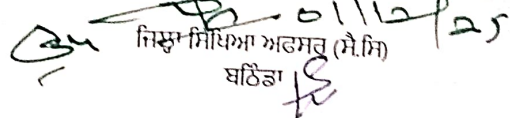 01/12/25
ਜਿਲ੍ਹਾ ਸਿੱਖਿਆ ਅਫਸਰ (ਸੈ.ਸਿ)
ਬਠਿੰਡਾ